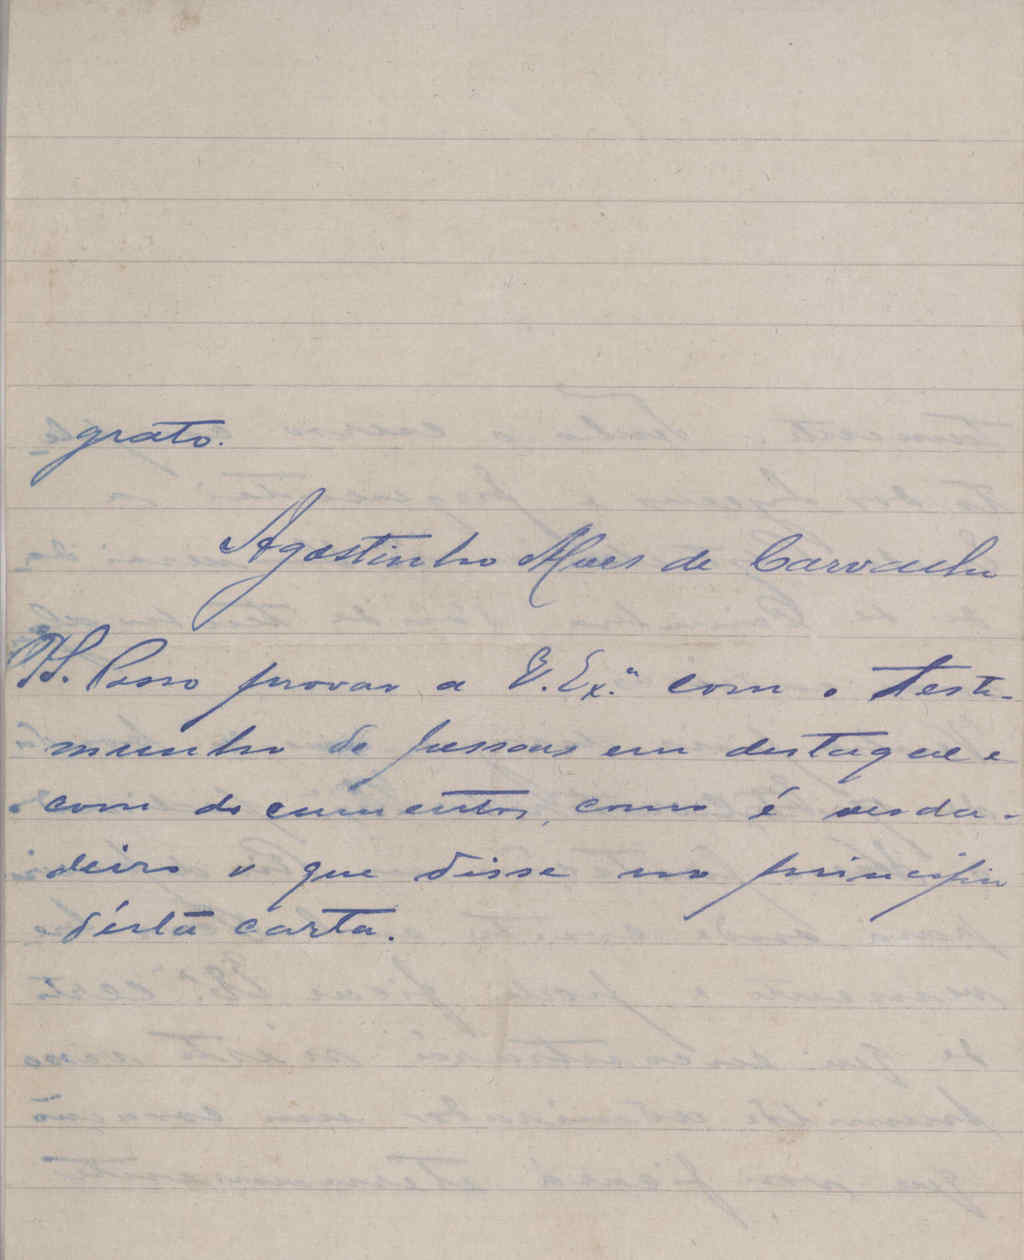 grato.
Agostinho Alves de Carvalho
P.S. Posso provar a V. Ex.ª com o teste-
munho de pessoas em destaque e
com documentos, como é verda-
deiro o que disse no principio
désta carta.